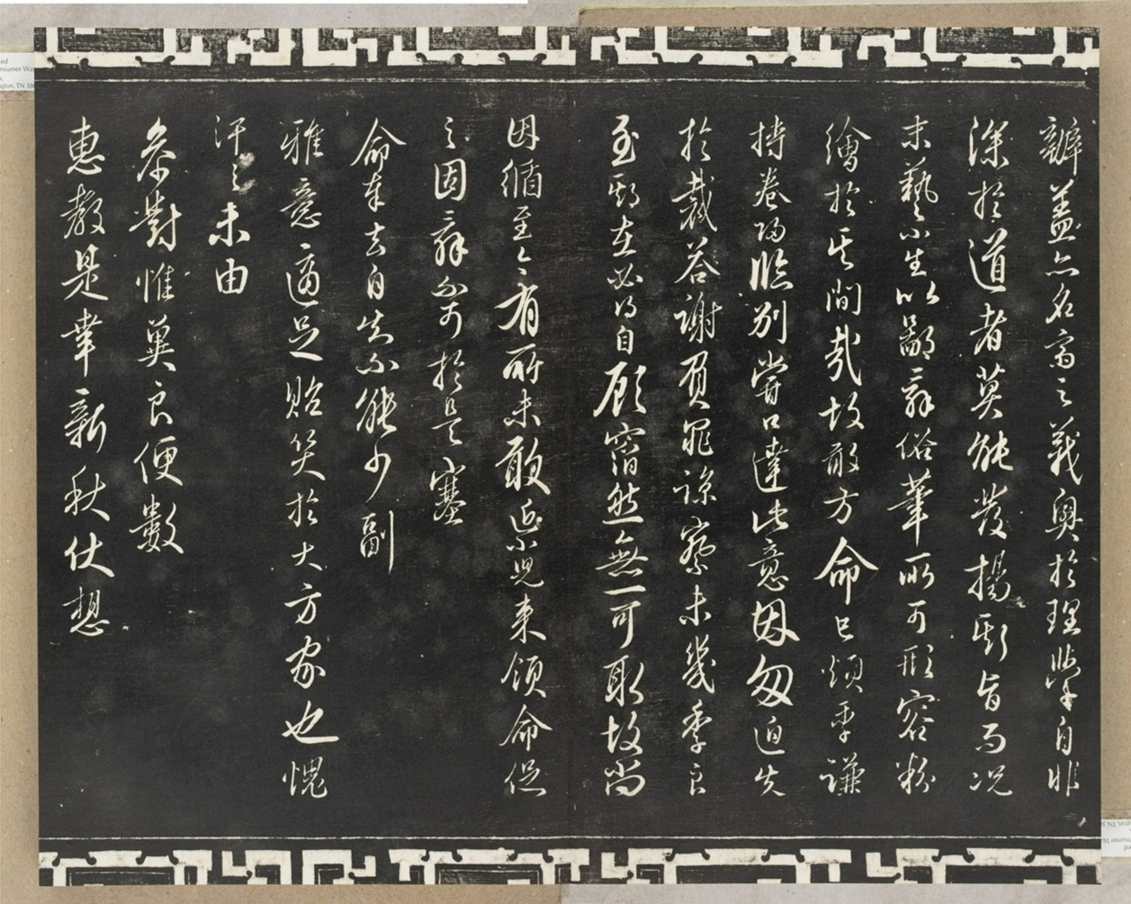 辭蓋亦名齋之義奧於理學自非
深於道者莫能發揚斯旨而况
末藝小生以鄙辭俗筆所可形容粉
繪於其間哉故敢方命已煩季謙
持卷歸臨別嘗口達此意因匆迫失
於裁答謝負罪諒察未幾季良
至斯在必得自顧窘然無一可取故尚
因循至今有所未敢近児来領命促
之因辭不可於是塞
命奉去自知不能少副
雅意適足貽笑於大方家也愧
汗之未由
參對惟冀良便數
惠教是幸新秋伏想